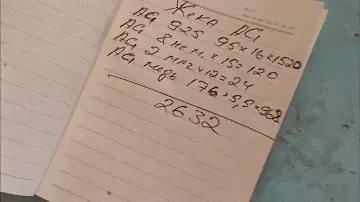 Жека AG
AG 925 95×16=1520
AG 8 кем. ×15=120
AG 2 маг ×12=24
AG медь 176×5,5=968
2632